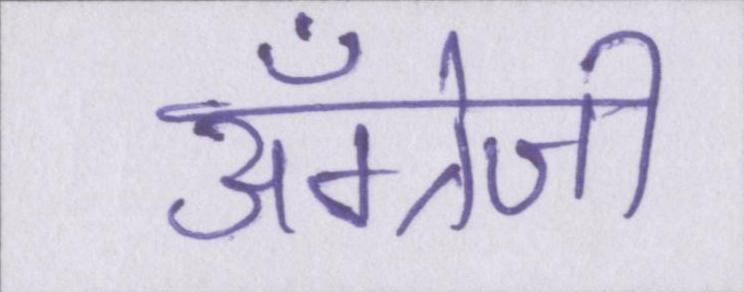 अँग्रेजी